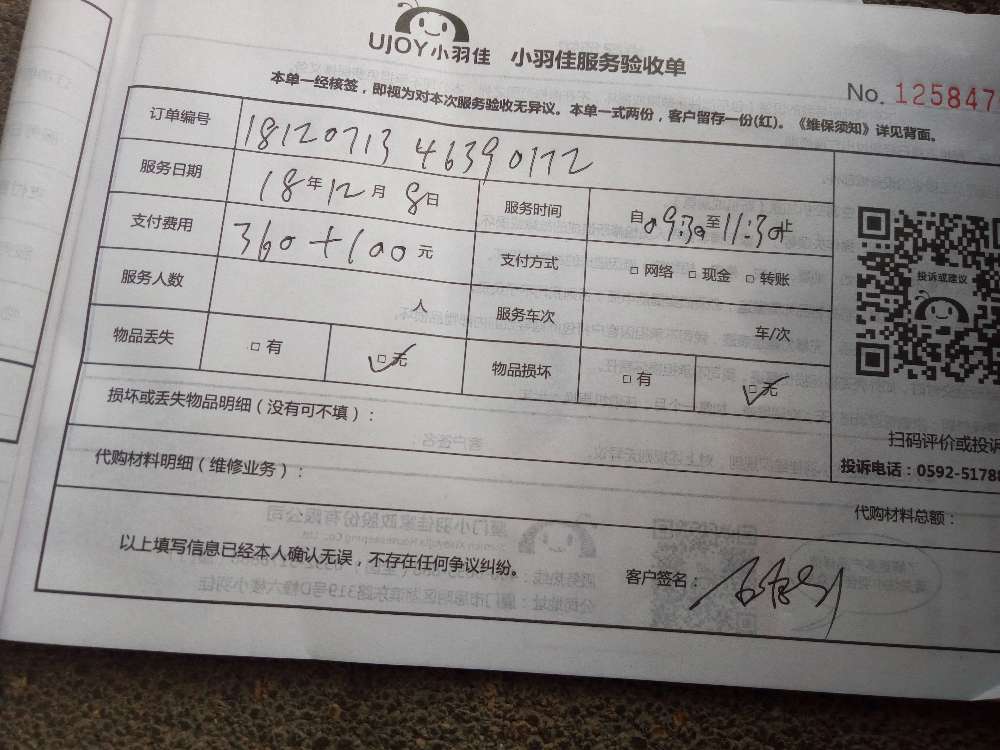 UJOY小羽佳 小羽佳服务验收单
No. 1258473
本单一经核签，即视为对本次服务验收无异议。本单一式两份，客户留存一份(红)。《维保须知》详见背面。
订单编号 18120713 46390172
服务日期 18年12月8日 服务时间 自09:30至11:30止
支付费用 360+100元 支付方式 □ 网络 □ 现金 □ 转账
服务人数 人 服务车次 车/次
物品丢失 □ 有 □ 无 物品损坏 □ 有 □ 无
投诉或建议
损坏或丢失物品明细（没有可不填）：
扫码评价或投诉
投诉电话：0592-5178
代购材料明细（维修业务）：
代购材料总额：
以上填写信息已经本人确认无误，不存在任何争议纠纷。
客户签名：